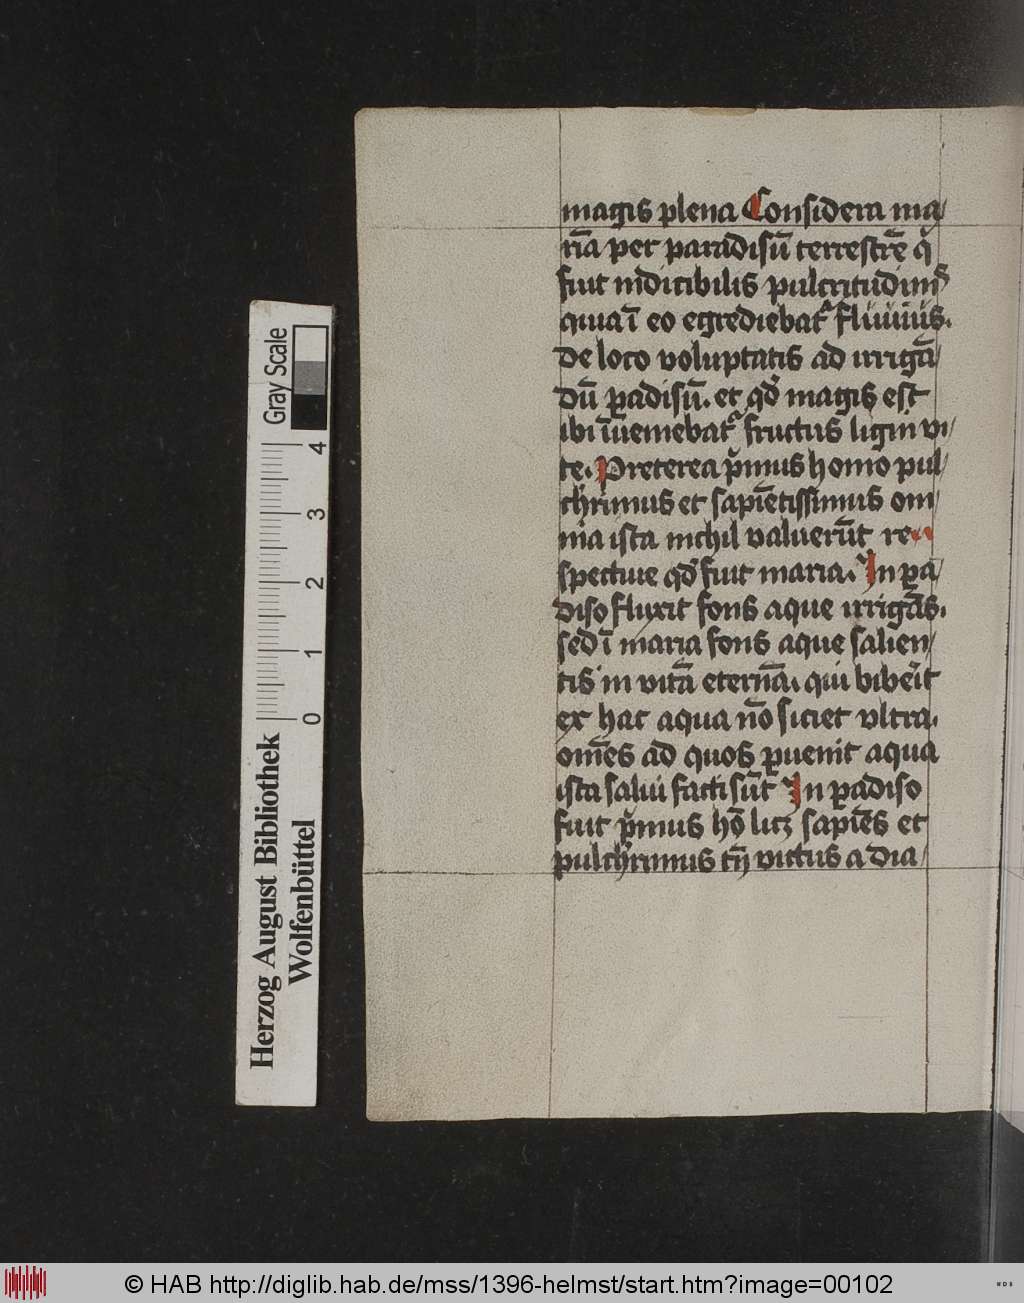 magis plena Considera ma/
ria̅ per paradisu̅ terrestre̅ q̊
fuit indicibilis pulcritudinis
quia i̅ eo egrediebat᷑ fluuius.
de loco voluptatis ad irriga̅/
du̅ p̲adisu̅. et qd̕ magis est
ibi i̅ueniebat᷑ fructus ligni vi/
te. Preterea p̓mus homo pul/
ch̓rimus et sapie̅tissimus om/
nia ista nichil valueru̅t re
spectiue qd̕ fuit maria. In p̲a/
diso fluxit fons aque irriga̅s.
sed i̅ maria fons aque salien/
tis in vita̅ eterna̅. qui biberit
ex hac aqua no̅ siciet vltra.
om̅es ad quos p̲uenit aqua
ista salui facti su̅t In p̲adiso
fuit p̓mus ho̅ licꝫ sapie̅s et
pulch̓rimus tn̅ victus a dia/
Gray Scale
4
3
2
1
0
Herzog August Bibliothek
Wolfenbüttel
© HAB http://diglib.hab.de/mss/1396-helmst/start.htm?image=00102
WDB